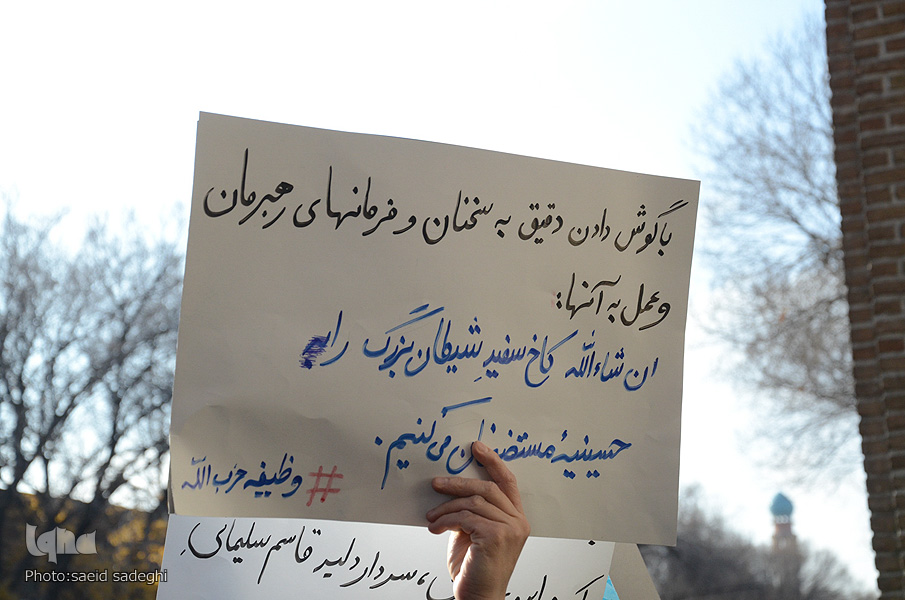 با گوش دادن دقیق به سخنان و فرمانهای رهبرمان
و عمل به آنها:
ان شاءالله کاخ سفیدِ شیطان بزرگ را
حسینیهٔ مستضعفان می کنیم.
#وظیفه حزب الله
سردار دلیر قاسم سلیمانی
iqna
Photo:saeid sadeghi